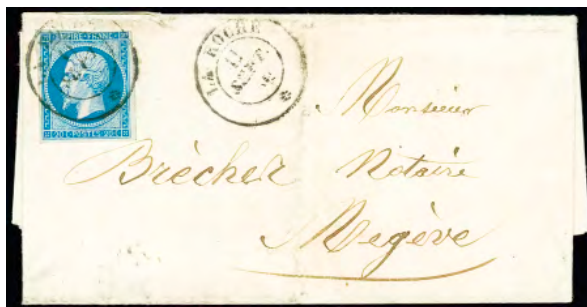 EMPIRE FRANC
20 C POSTES 20 C
LA ROCHE
11
SEPT.
Monsieur
Brècher Notaire
Megève